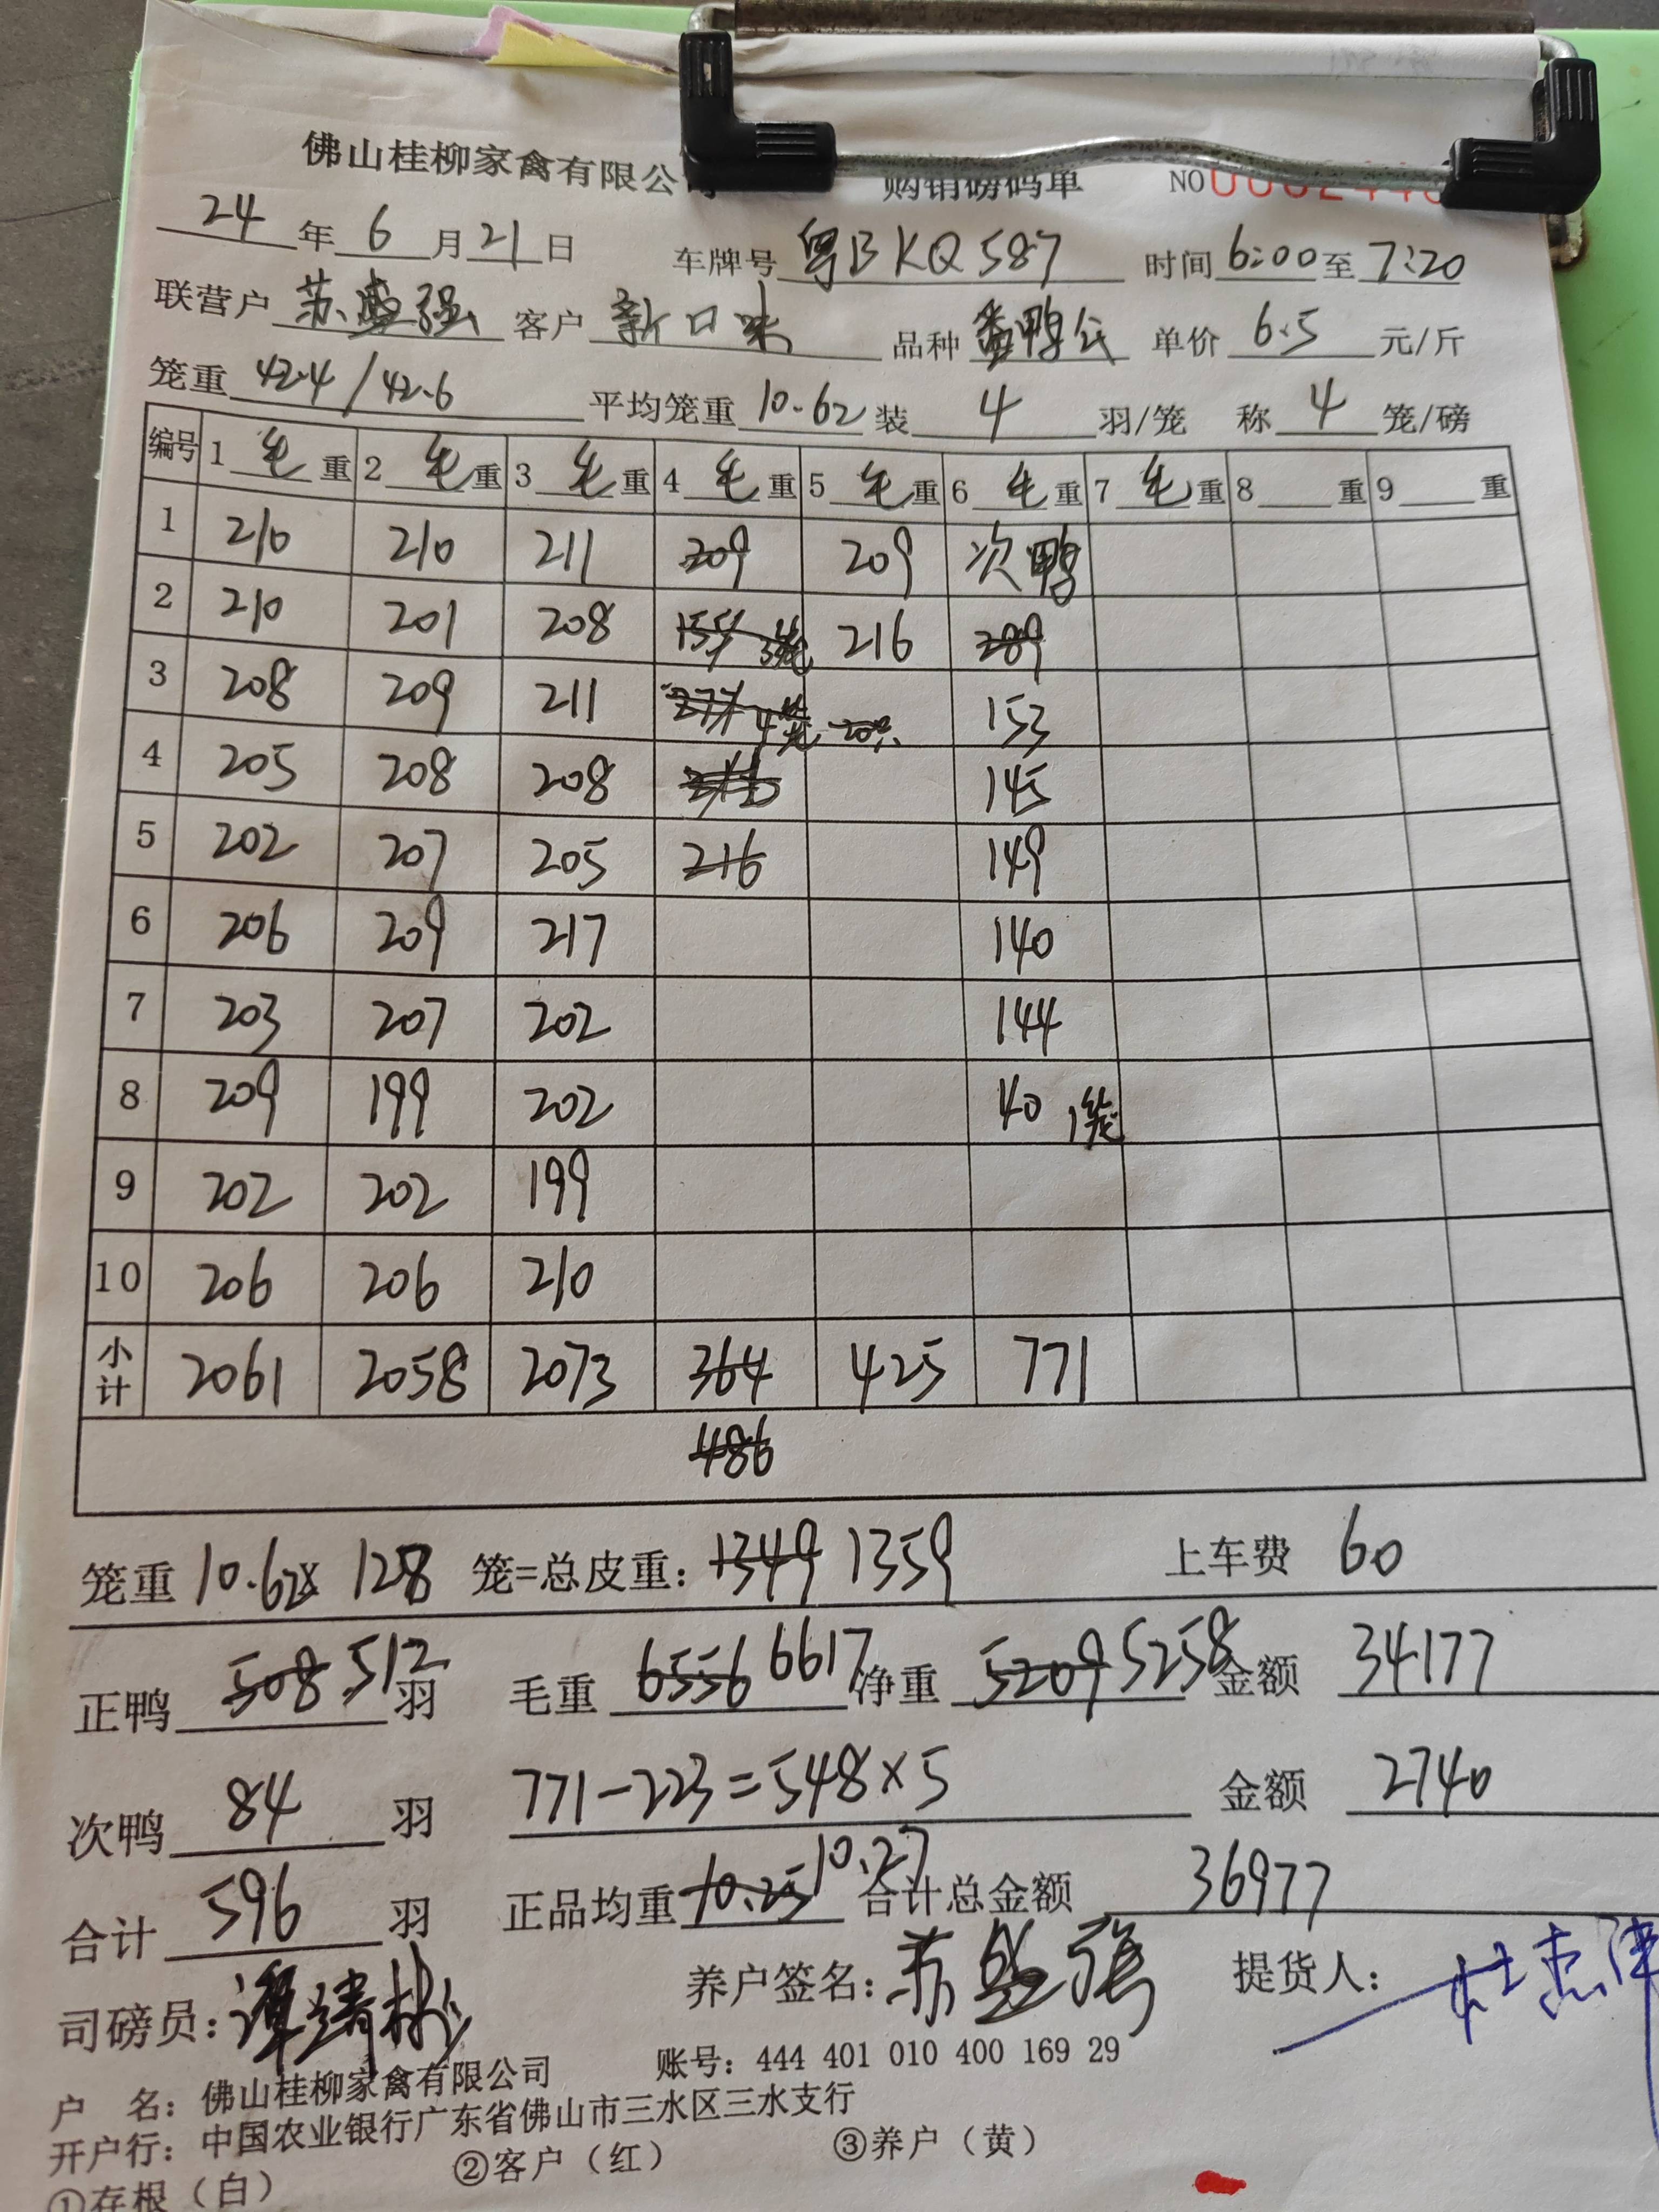 佛山桂柳家禽有限公司 购销磅码单 NO
24 年 6 月 21 日 车牌号 粤BKQ587 时间 6:00 至 7:20
联营户 苏盛强 客户 新口味 品种 番鸭公 单价 6.5 元/斤
笼重 42.4/42.6 平均笼重 10.62 装 4 羽/笼 称 4 笼/磅
编号 1 毛 重 2 毛 重 3 毛 重 4 毛 重 5 毛 重 6 毛 重 7 毛 重 8 重 9 重
1 210 210 211 209 209 次鸭
2 210 201 208 155 3笼 216 289
3 208 209 211 277 4笼 20只 153
4 205 208 208 145
5 202 207 205 216 149
6 206 209 217 140
7 203 207 202 144
8 209 199 202 40 1笼
9 202 202 199
10 206 206 210
小计 2061 2058 2073 364 425 771
486
笼重 10.62× 128 笼=总皮重: 1349 1359 上车费 60
正鸭 508 512 羽 毛重 6556 6617 净重 5209 5258 金额 34177
次鸭 84 羽 771-223=548×5 金额 2740
合计 596 羽 正品均重 10.25 10.27 合计总金额 36977
司磅员: 养户签名: 苏盛强 提货人:
户 名: 佛山桂柳家禽有限公司 账号: 444 401 010 400 169 29
开户行: 中国农业银行广东省佛山市三水区三水支行
①存根（白） ②客户（红） ③养户（黄）